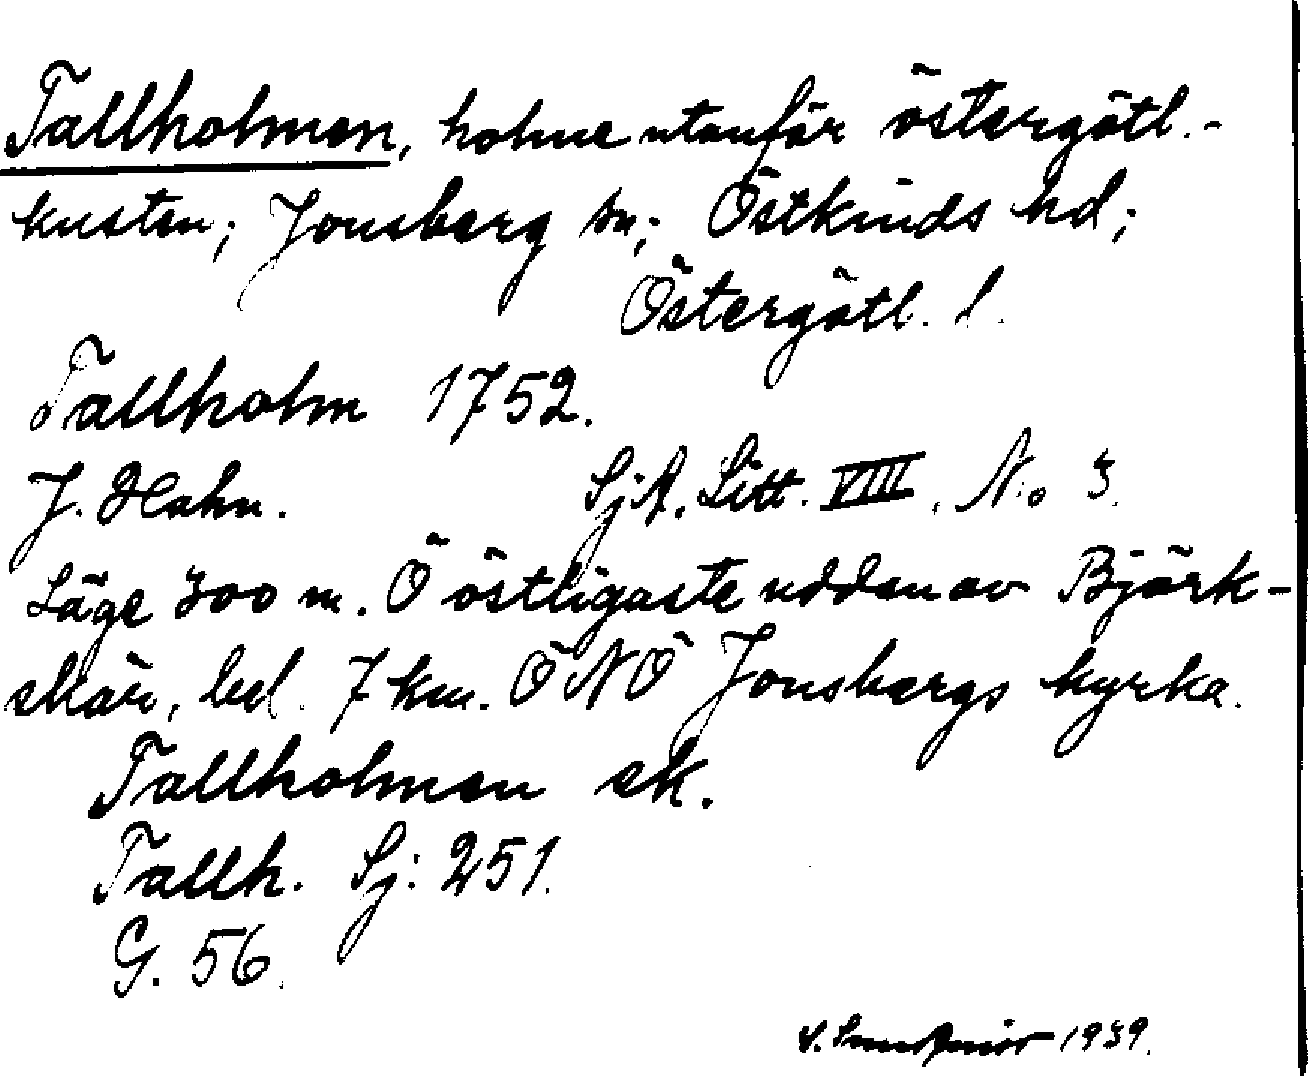 Tallholmen, holme utanför östergötl.-
kusten; Jonsberg sn; Östkinds hd;
Östergötl. l.
Tallholm 1752.
J. Hahn. SjA. Litt. VIII, No 3.
Läge 300 m. Ö östligaste udden av Björk-
skär, bel. 7 km. ÖNÖ Jonsbergs kyrka.
Tallholmen ek.
Tallh. Sj: 251.
G. 56.
1939.